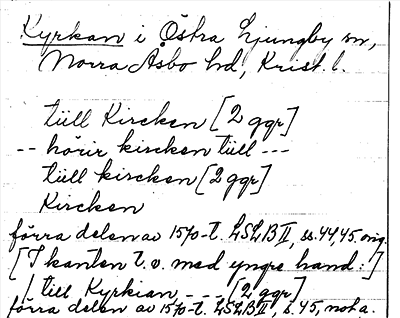 Kyrkan i Östra Ljungby sn,
Norra Åsbo hd, Krist. l.
tüll Kircken [2 ggr]
-- hörir kircken tüll ---
tüll kircken [2 ggr]
Kircken
förra delen av 1570-t. LSLB II, ss. 44, 45, orig.
[I kanten t. v. med yngre hand:]
till Kyrkian --- [2 ggr]
förra delen av 1570-t. LSLB II, s. 45, nota.